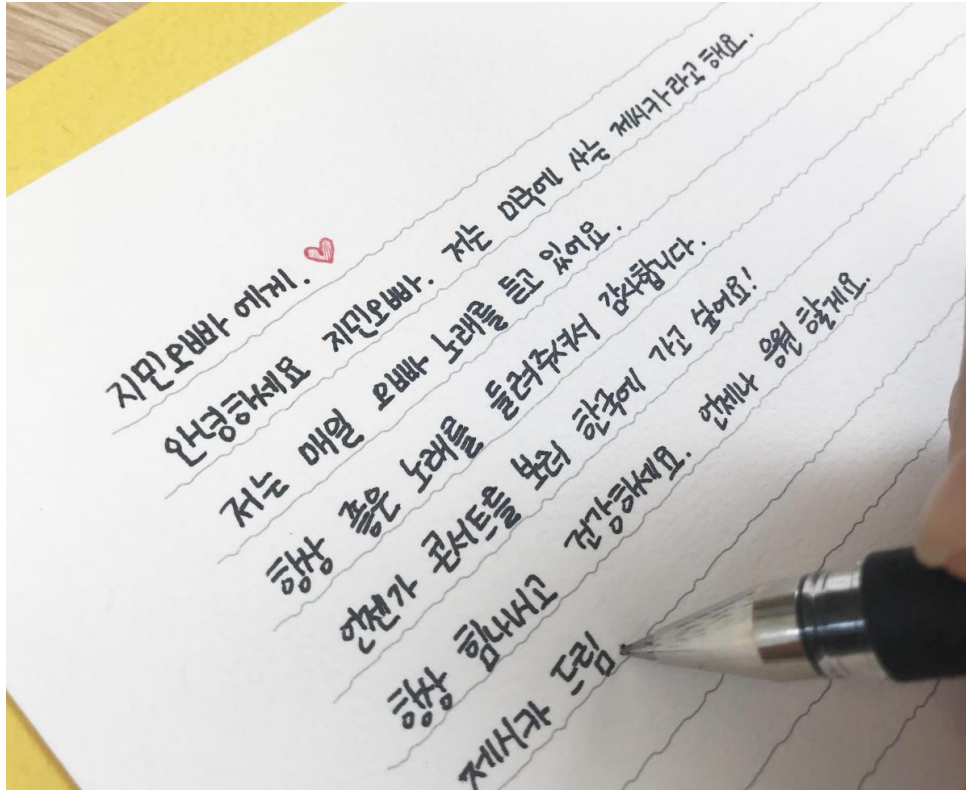 지민오빠에게. ♥
안녕하세요 지민오빠. 저는 미국에 사는 제시카라고 해요.
저는 매일 오빠 노래를 듣고 있어요.
항상 좋은 노래를 들려주셔서 감사합니다.
언젠가 콘서트를 보러 한국에 가고 싶어요!
항상 힘내시고 건강하세요. 언제나 응원 할게요.
제시카 드림